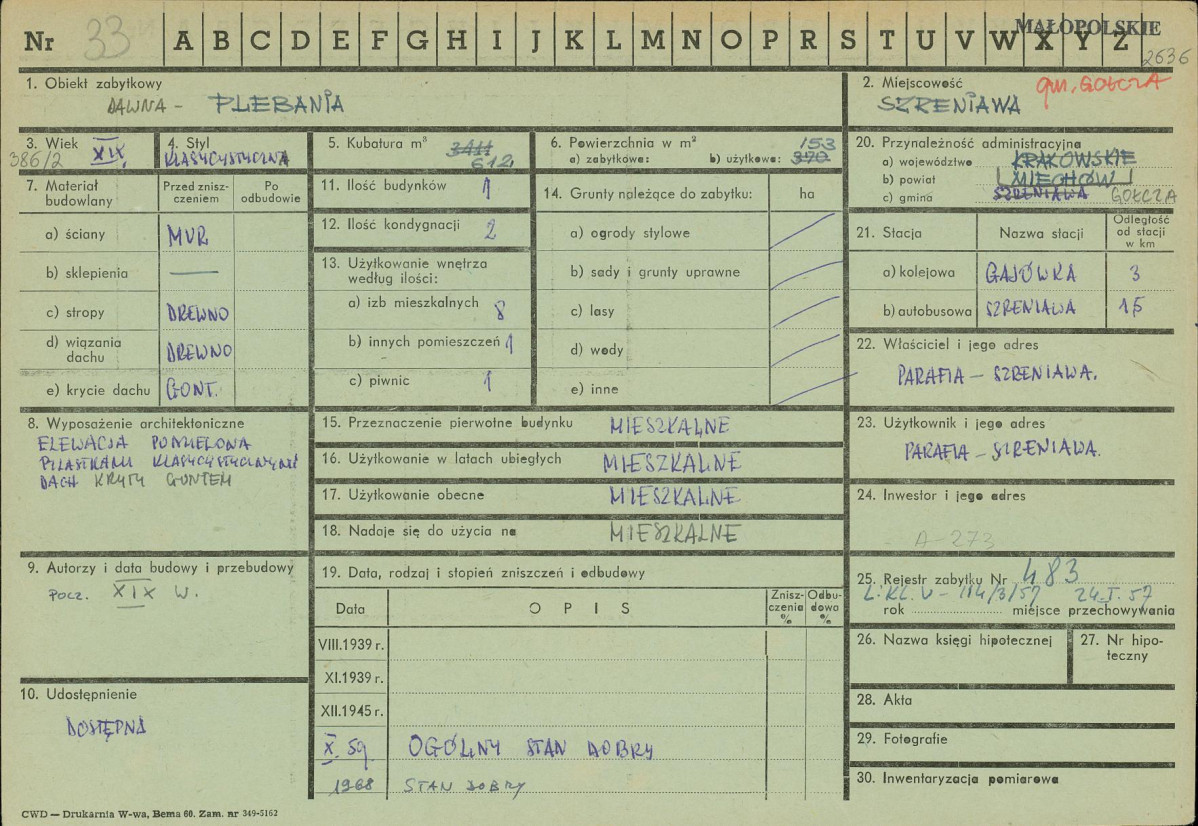 Nr 33 A B C D E F G H I J K L M N O P R S T U V W X Y Z MAŁOPOLSKIE
2636
1. Obiekt zabytkowy
DAWNA - PLEBANIA
2. Miejscowość gm. GOŁCZA
SZRENIAWA
3. Wiek XIX.
386/2
4. Styl
KLASYCYSTYCZNA
5. Kubatura m³ 3411
612
6. Powierzchnia w m²
a) zabytkowa: b) użytkowa: 370
153
7. Materiał budowlany
Przed zniszczeniem
Po odbudowie
a) ściany MUR
b) sklepienia —
c) stropy DREWNO
d) wiązania dachu DREWNO
e) krycie dachu GONT.
8. Wyposażenie architektoniczne
ELEWACJA PODZIELONA
PILASTRAMI KLASYCYSTYCZNYMI
DACH KRYTY GONTEM
9. Autorzy i data budowy i przebudowy
POCZ. XIX W.
10. Udostępnienie
DOSTĘPNA
11. Ilość budynków 1
12. Ilość kondygnacji 2
13. Użytkowanie wnętrza
według ilości:
a) izb mieszkalnych 8
b) innych pomieszczeń 1
c) piwnic 1
14. Grunty należące do zabytku: ha
a) ogrody stylowe
b) sady i grunty uprawne
c) lasy
d) wody
e) inne
15. Przeznaczenie pierwotne budynku MIESZKALNE
16. Użytkowanie w latach ubiegłych MIESZKALNE
17. Użytkowanie obecne MIESZKALNE
18. Nadaje się do użycia na MIESZKALNE
19. Data, rodzaj i stopień zniszczeń i odbudowy
Data O P I S Zniszczenia % Odbudowa %
VIII.1939 r.
XI.1939 r.
XII.1945 r.
X. 59 OGÓLNY STAN DOBRY
1968 STAN DOBRY
20. Przynależność administracyjna
a) województwo KRAKOWSKIE
b) powiat MIECHÓW
c) gmina SZRENIAWA GOŁCZA
21. Stacja Nazwa stacji Odległość od stacji w km
a) kolejowa GAJÓWKA 3
b) autobusowa SZRENIAWA 15
22. Właściciel i jego adres
PARAFIA - SZRENIAWA.
23. Użytkownik i jego adres
PARAFIA - SZRENIAWA.
24. Inwestor i jego adres
A-273
25. Rejestr zabytku Nr 483
L: KL. V - 114/3/57 24.I.57
rok miejsce przechowywania
26. Nazwa księgi hipotecznej
27. Nr hipoteczny
28. Akta
29. Fotografie
30. Inwentaryzacja pomiarowa
CWD — Drukarnia W-wa, Bema 60. Zam. nr 349-5162